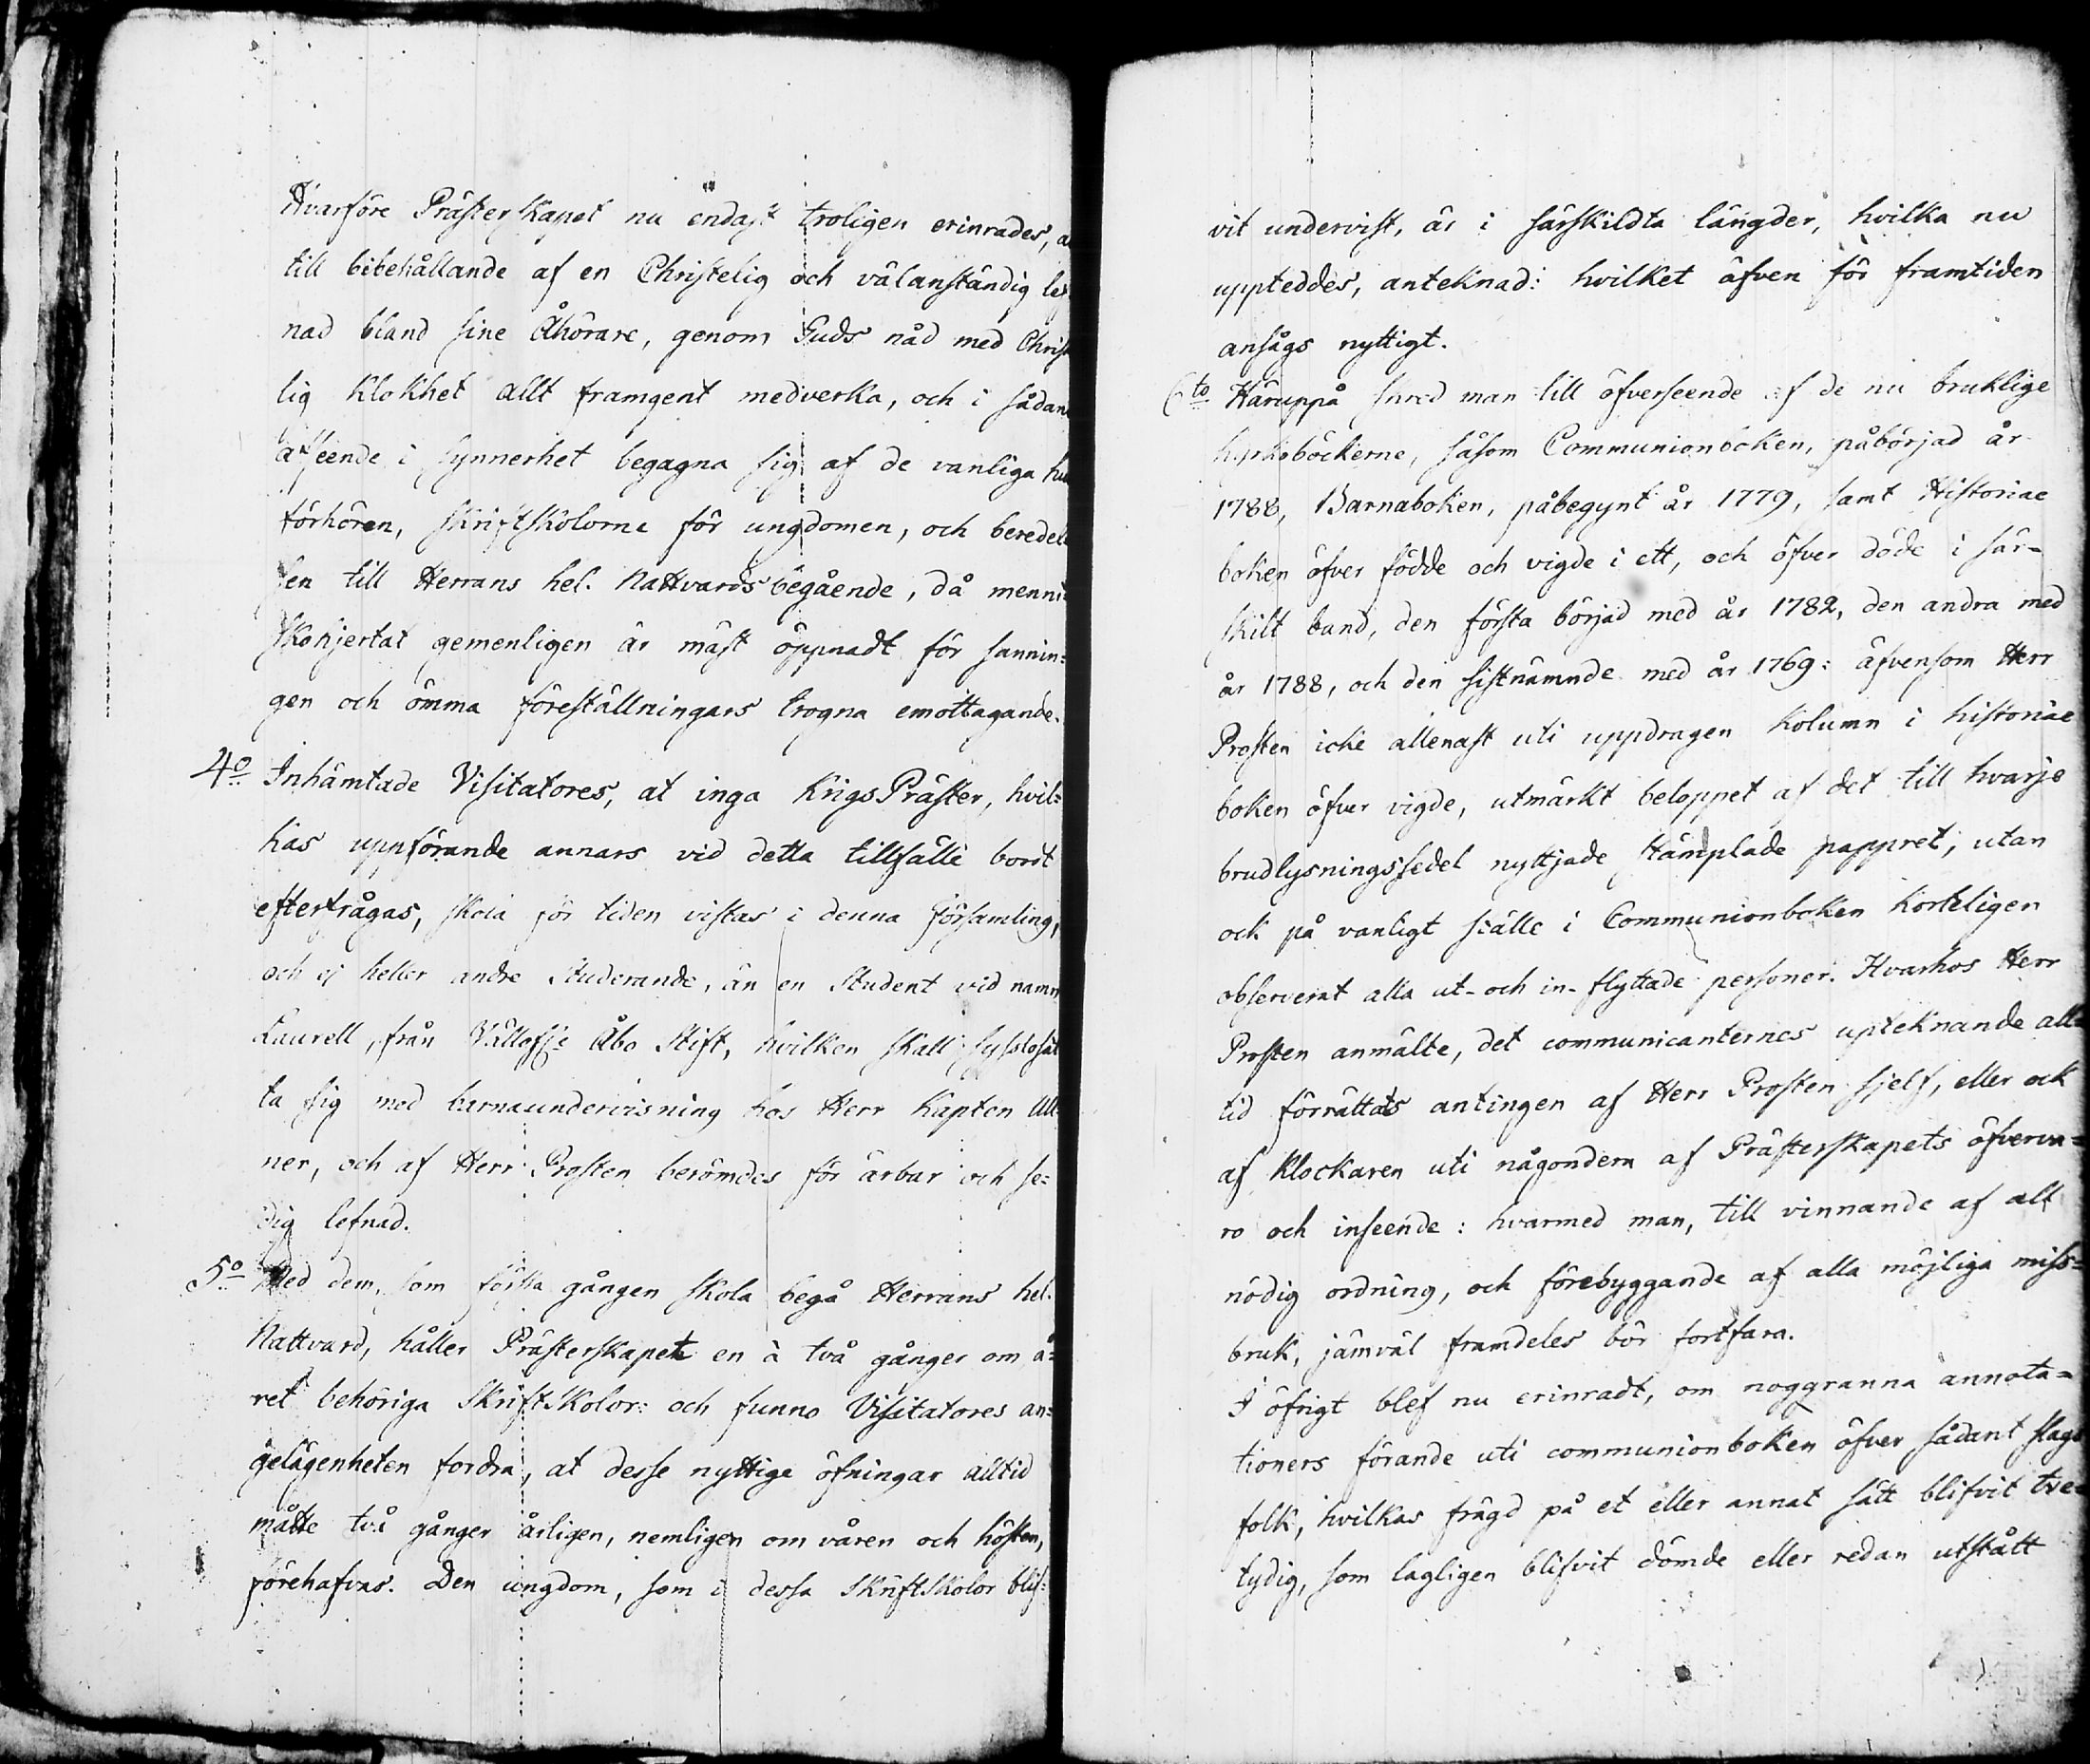 Hvarföre Prästerskapet nu endast troligen erinrades, a
till bibehållande af en Christelig och välanständig lef
nad bland sine Åhörare, genom Guds nåd med Christ
lig klokhet allt framgent medverka, och i sådan
afseende i synnerhet begagna sig af de vanliga hus
förhören, skriftskolorne för ungdomen, och beredel
sen till Herrans hel. Nattvards begående, då menni=
skohjertat gemenligen är mäst öppnadt för sannin=
gen och ömma föreställningars trogna emottagande.
4o Inhämtade Visitatores, at inga KrigsPräster, hvil=
kas uppförande annars vid detta tillfälle bordt
efterfrågas, skola för tiden vistas i denna församling,
och ej heller andre Studerande, än en Student vid namn
Laurell, från Åbo Stift, hvilken skall sysslosät
ta sig med barnaundervisning hos Herr Kapten
ner, och af Herr Prosten berömdes för ärbar och se=
dig lefnad.
5o Med dem, som första gången skola begå Herrans hel.
Nattvard, håller Prästerskapet en à två gånger om å=
ret behöriga Skriftskolor: och funno Visitatores an=
gelägenheten fordra, at desse nyttige öfningar alltid
måtte två gånger årligen, nemligen om våren och hösten,
förehafvas. Den ungdom, som i dessa Skriftskolor blif=
vit undervist, är i särskildta längder, hvilka nu
uppteddes, anteknad: hvilket äfven för framtiden
ansågs nyttigt.
6to Häruppå skred man till öfverseende af de nu bruklige
kyrkoböckerne, såsom Communionboken, påbörjad år
1788, Barnaboken, påbegynt år 1779, samt Historiae
boken öfver födde och vigde i ett, och öfver döde i sär=
skilt band, den första börjad med år 1782, den andra med
år 1788, och den sistnämnde med år 1769: äfvensom Herr
Prosten icke allenast uti uppdragen kolumn i historiae
boken öfver vigde, utmärkt beloppet af det till hvarje
brudlysningssedel nyttjade stämplade pappret; utan
ock på vanligt ställe i Communionboken korteligen
observerat alla ut- och in- flyttade personer. Hvarhos Herr
Prosten anmälte, det communicanternes upteknande all
tid förrättats antingen af Herr Prosten sjelf, eller ock
af klockaren uti någondera af Prästerskapets öfverva=
ro och inseende: hvarmed man, till vinnande af all
nödig ordning, och förebyggande af alla möjliga miss=
bruk, jämväl framdeles bör fortfara.
I öfrigt blef nu erinradt, om noggranna annota=
tioners förande uti communionboken öfver sådant slags
folk, hvilkas frägd på et eller annat sätt blifvit tve=
tydig, som lagligen blifvit dömde eller redan utstått